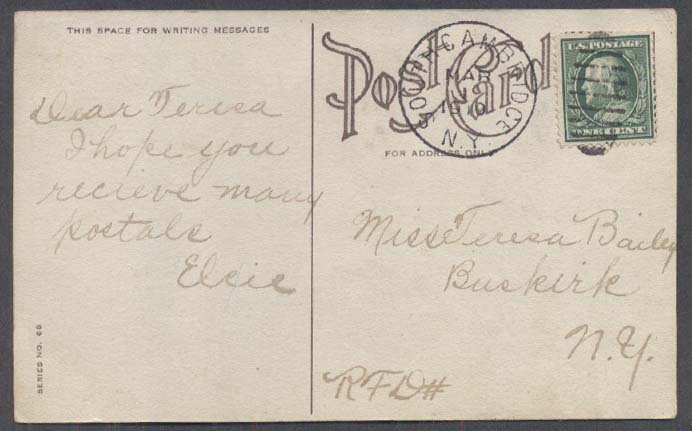 THIS SPACE FOR WRITING MESSAGES
Dear Teresa
I hope you
recieve many
postals
Elsie
SERIES NO. 68
Post Card
FOR ADDRESS ONLY
SOUTH CAMBRIDGE
MAR
N.Y.
U.S. POSTAGE
ONE CENT
Miss Teresa Bailey
Buskirk
N.Y.
RFD#